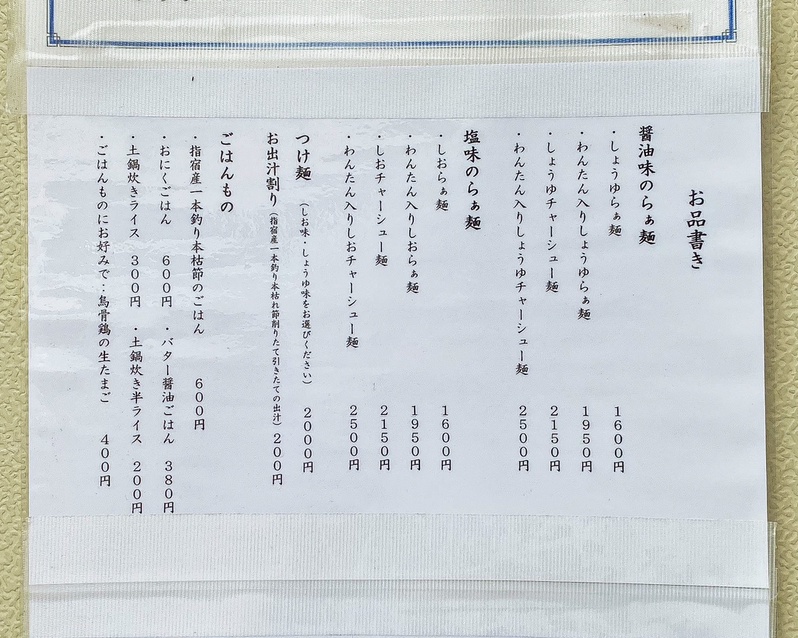 お品書き
醤油味のらぁ麺
・しょうゆらぁ麺 1600円
・わんたん入りしょうゆらぁ麺 1950円
・しょうゆチャーシュー麺 2150円
・わんたん入りしょうゆチャーシュー麺 2500円
塩味のらぁ麺
・しおらぁ麺 1600円
・わんたん入りしおらぁ麺 1950円
・しおチャーシュー麺 2150円
・わんたん入りしおチャーシュー麺 2500円
つけ麺 （しお味・しょうゆ味をお選びください） 2000円
お出汁割り（指宿産一本釣り本枯れ節削りたて引きたての出汁）200円
ごはんもの
・指宿産一本釣り本枯節のごはん 600円
・おにくごはん 600円 ・バター醤油ごはん 380円
・土鍋炊きライス 300円 ・土鍋炊き半ライス 200円
・ごはんものにお好みで：烏骨鶏の生たまご 400円